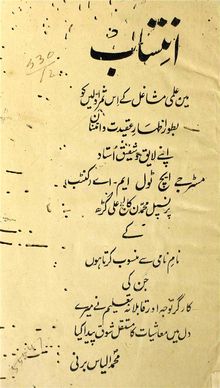 انتساب
530/2
میں علمی مشاغل کے اس ثمرۂ اولیں کو
بطور اظہار عقیدت و امتنان
اپنے لایق و شفیق استاد
مسٹر جے ایچ ٹول ایم-اے کنٹب
پرنسپل محمڈن کالج علی گڑھ
کے
نام نامی سے منسوب کرتا ہوں
جن کی
کارگر توجہ اور قابلانہ تعلیم نے میرے
دل میں معاشیات کا مستقل شوق پیدا کیا
محمد الیاس برنی